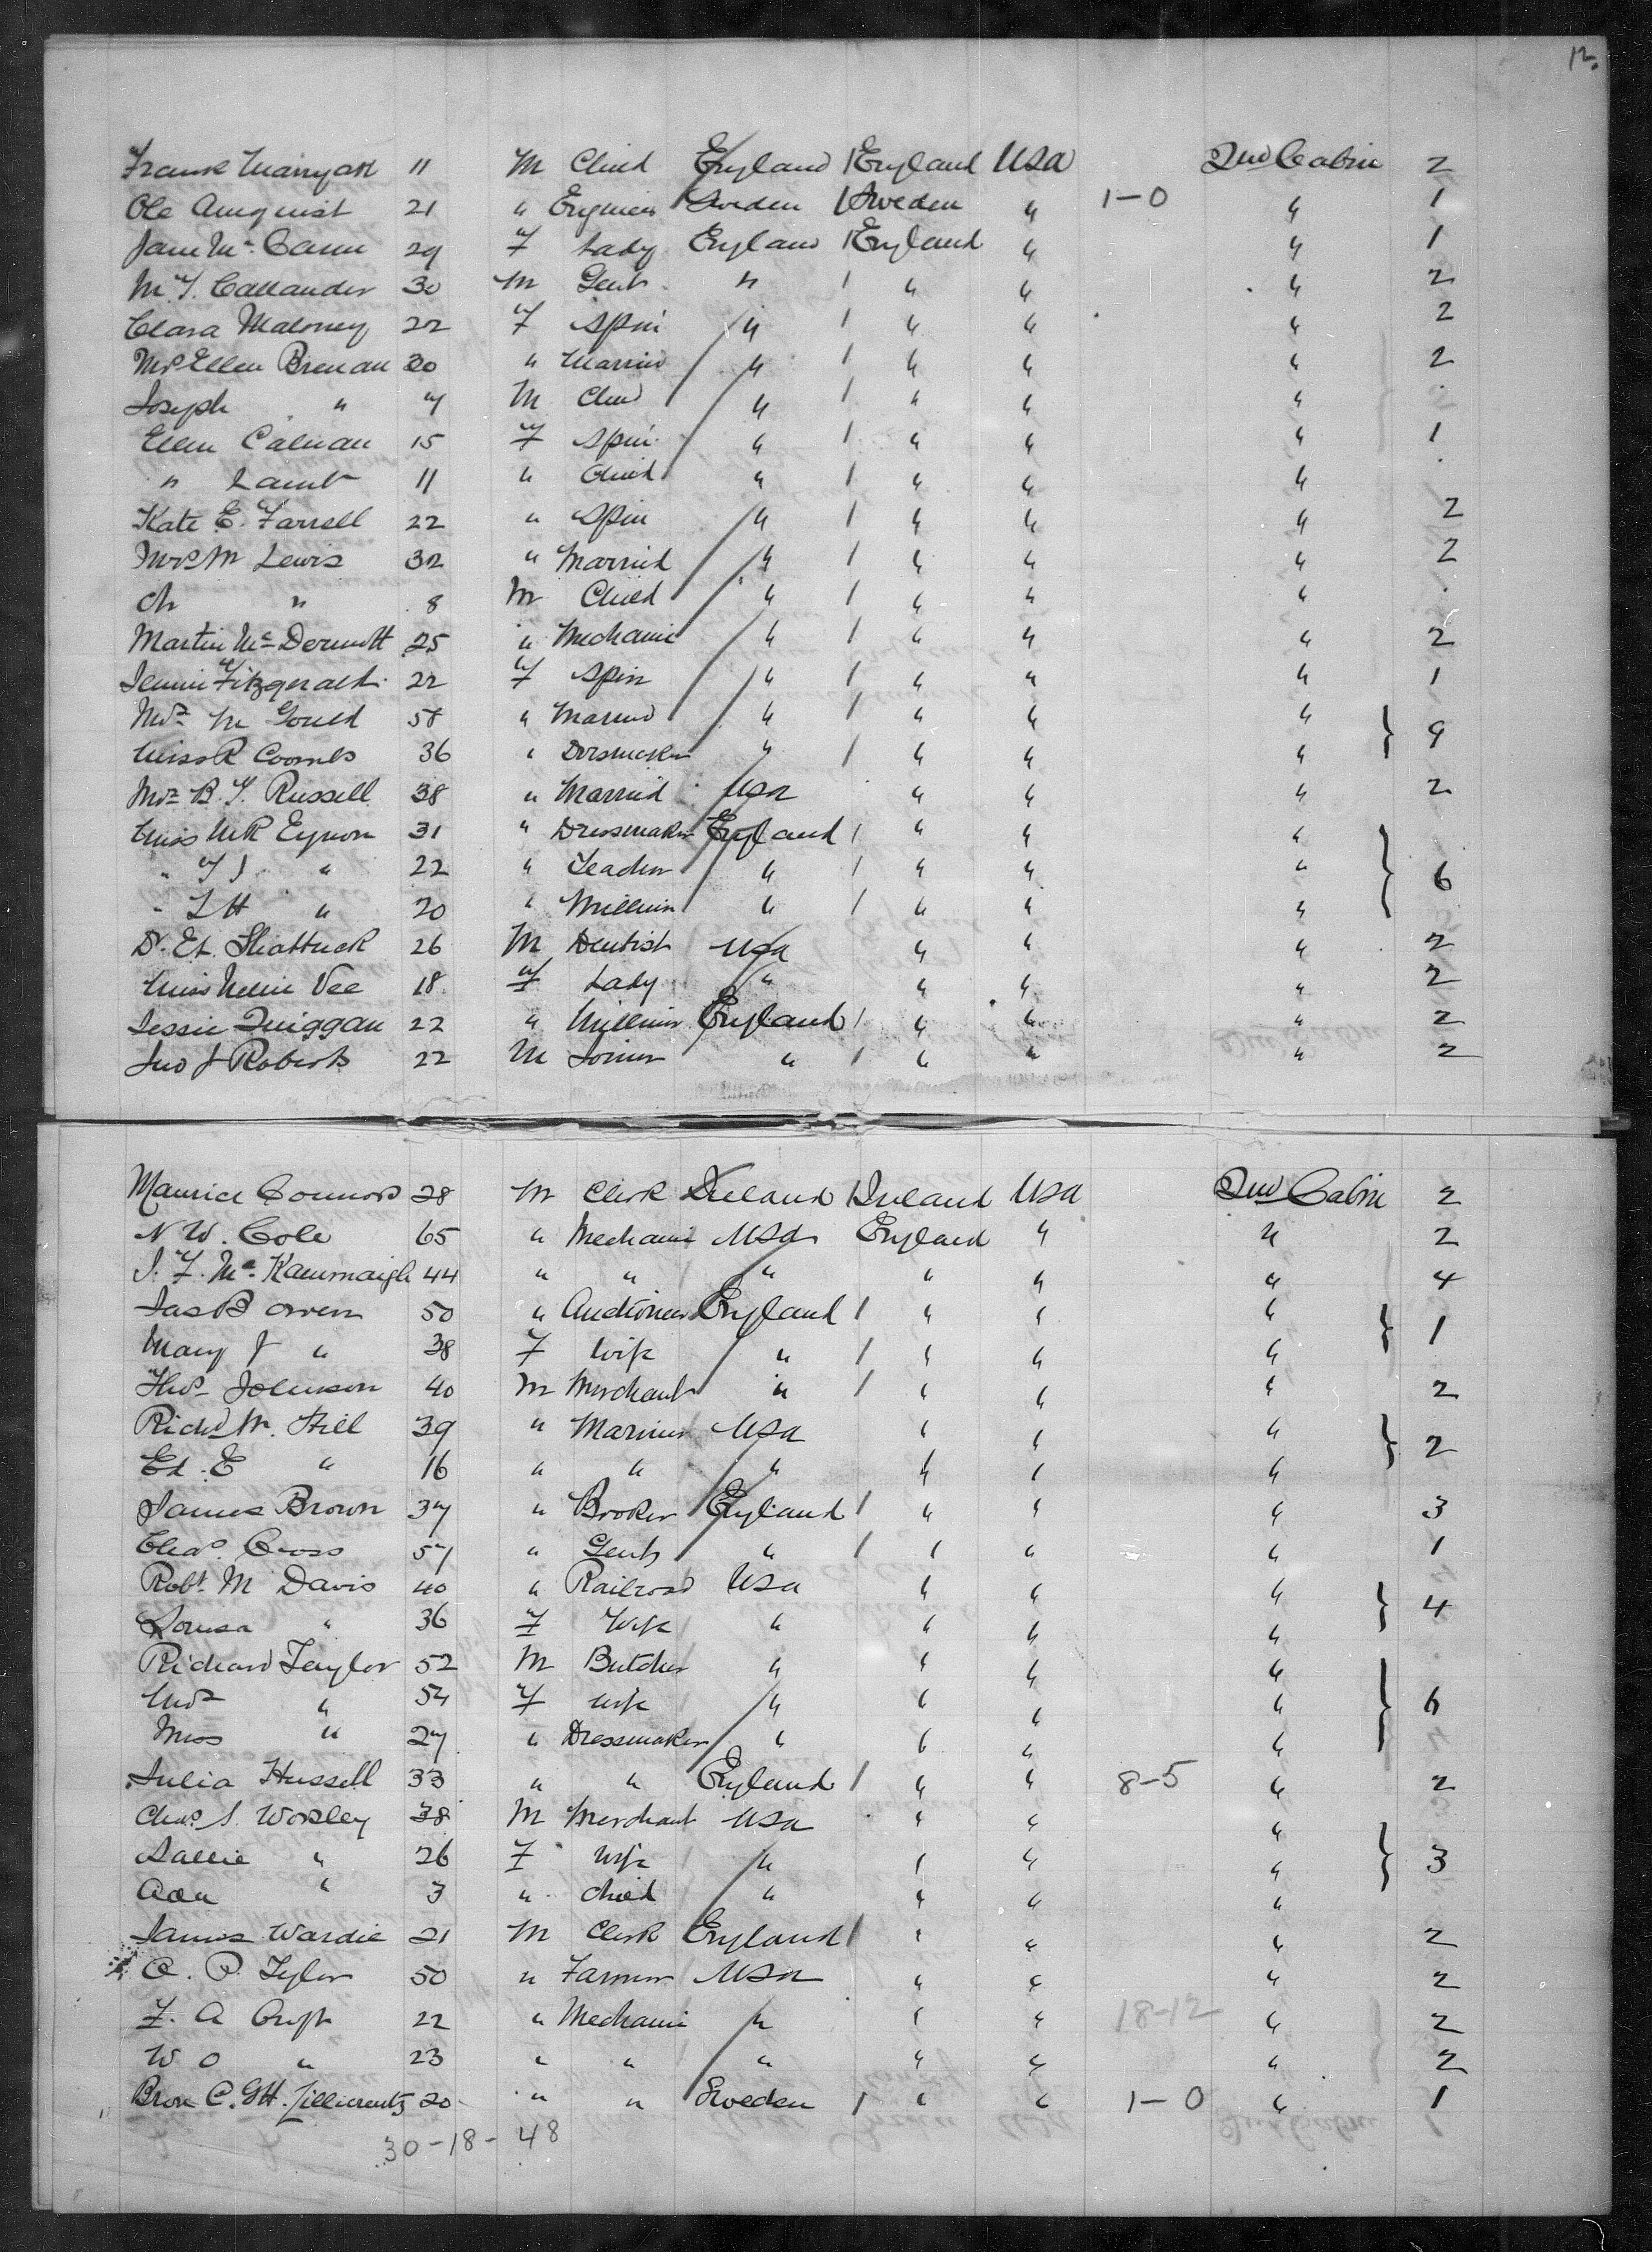 12.
Frank Marryatt 11 M Child England 1 England USA 2nd Cabin 2
Ole Amquist 21 " Engineer Sweden 1 Sweden " 1-0 " 1
Jane Mc Cann 29 F Lady England 1 England " " 1
M. T. Callander 30 M Gent " 1 " " " 2
Clara Maloney 22 F Spin " 1 " " " 2
Mrs Ellen Brenan 30 " Married " 1 " " " 2
Joseph " 7 M Child " 1 " " "
Ellen Calnan 15 F Spin " 1 " " " 1
" Lamb 11 " Child " 1 " " "
Kate E. Farrell 22 " Spin " 1 " " " 2
Mrs M Lewis 32 " Married " 1 " " " 2
Ch " 8 M Child " 1 " " "
Martin Mc Dermott 25 " Mechanic " 1 " " " 2
Jennie Fitzgerald 22 F Spin " 1 " " " 1
Mrs M Gould 58 " Married " 1 " " "
Miss R Coombs 36 " Dresmaker " 1 " " " } 9
Mrs B. F. Russell 38 " Married USA " " " 2
Miss M R Eynon 31 " Dressmaker England 1 " " "
" F J " 22 " Teacher " 1 " " " } 6
" L H " 20 " Milliner " 1 " " "
Dr. Ed. Shattuck 26 M Dentist USA " " " 2
Miss Nellie Vee 18 F Lady " " " " 2
Jessie Quiggan 22 " Milliner England 1 " " " 2
Jno J Roberts 22 M Joiner " 1 " " " 2
Maurice Connors 28 M Clerk Ireland 1 Ireland USA 2nd Cabin 2
N W. Cole 65 " Mechanic USA England " " 2
J. F. Mc Kavmaigh 44 " " " " " " 4
Jas B Owen 50 " Auctioneer England 1 " " "
Mary J " 38 F Wife " 1 " " " } 1
Thos Johnson 40 M Merchant " 1 " " " 2
Richd W. Hill 39 " Mariner USA " " "
Ed. E " 16 " " " " " " } 2
James Brown 37 " Broker England 1 " " " 3
Chas. Cross 57 " Gent " 1 " " " 1
Robt M Davis 40 " Railroad USA " " "
Louisa " 36 F Wife " " " " } 4
Richard Taylor 52 M Butcher " " " "
Mrs " 54 F Wife " " " " } 6
Miss " 27 " Dressmaker " " " "
Julia Hussell 33 " " England 1 " " 8-5 " 2
Chas. S. Worsley 38 M Merchant USA " " "
Sallie " 26 F Wife " " " " } 3
Ada " 3 " Child " " " "
James Wardie 21 M Clerk England 1 " " " 2
O. P. Tyler 50 " Farmer USA " " " 2
F. A Croft 22 " Mechanic " " " 18-12 " 2
W O " 23 " " " " " " 2
Bron C. G H. Lilliecreutz 20 " " Sweden 1 " " 1-0 " 1
30-18-48